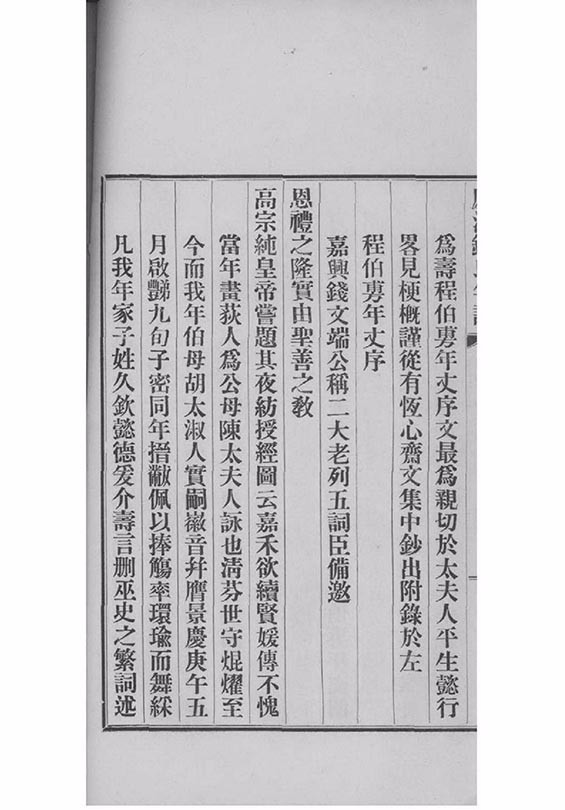 為壽程伯旉年丈序文最為親切於太夫人平生懿行
畧見梗概謹從有恆心齋文集中鈔出附錄於左
程伯旉年丈序
嘉興錢文端公稱二大老列五詞臣備邀
恩禮之隆實由聖善之教
高宗純皇帝嘗題其夜紡授經圖云嘉禾欲續賢媛傳不愧
當年畫荻人為公母陳太夫人詠也淸芬世守焜燿至
今而我年伯母胡太淑人實嗣徽音幷膺景慶庚午五
月啟豒九旬子密同年搢黻佩以捧觴率環瑜而舞綵
凡我年家子姓久欽懿德爰介壽言删巫史之繁詞述